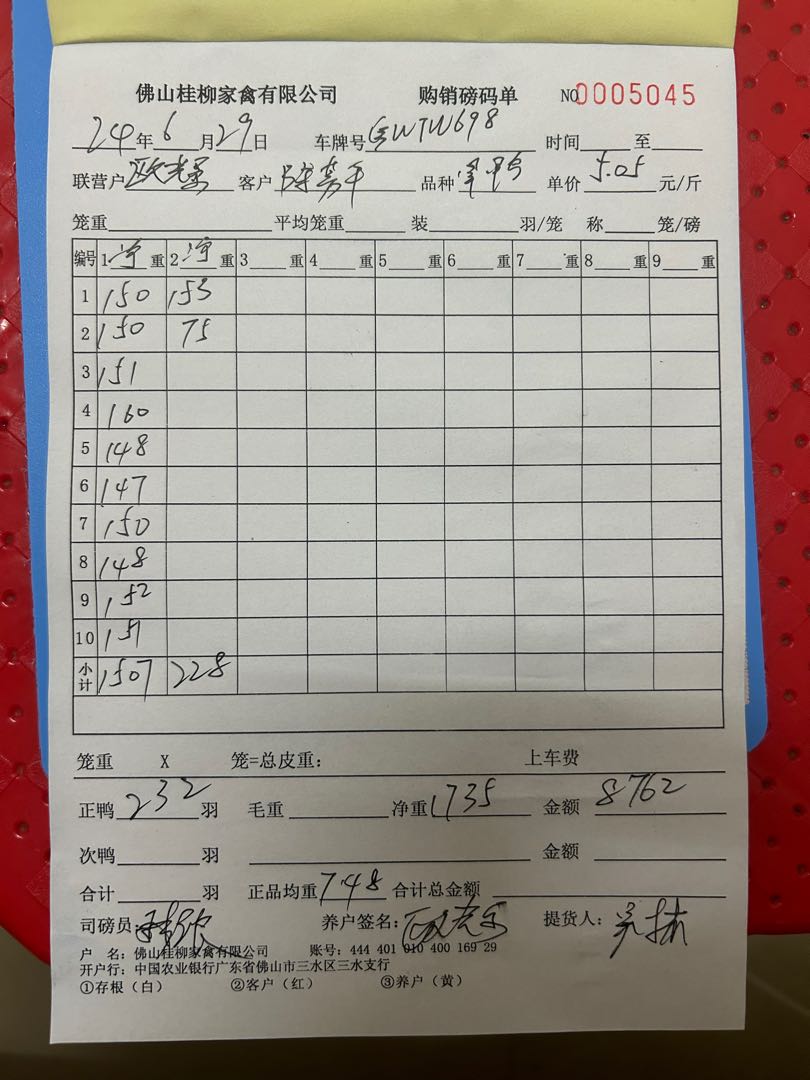 佛山桂柳家禽有限公司 购销磅码单 NO0005045
24年6月29日 车牌号WTW698 时间 至
联营户 客户 品种 单价5.05元/斤
笼重 平均笼重 装 羽/笼 称 笼/磅
编号 1净重 2净重 3 重 4 重 5 重 6 重 7 重 8 重 9 重
1 150 153
2 150 75
3 151
4 160
5 148
6 147
7 150
8 148
9 152
10 151
小计 1507 228
笼重 X 笼=总皮重: 上车费
正鸭232羽 毛重 净重1735 金额8762
次鸭 羽 金额
合计 羽 正品均重7.48 合计总金额
司磅员: 养户签名: 提货人:
户 名:佛山桂柳家禽有限公司 账号:444 401 010 400 169 29
开户行:中国农业银行广东省佛山市三水区三水支行
①存根(白) ②客户(红) ③养户(黄)